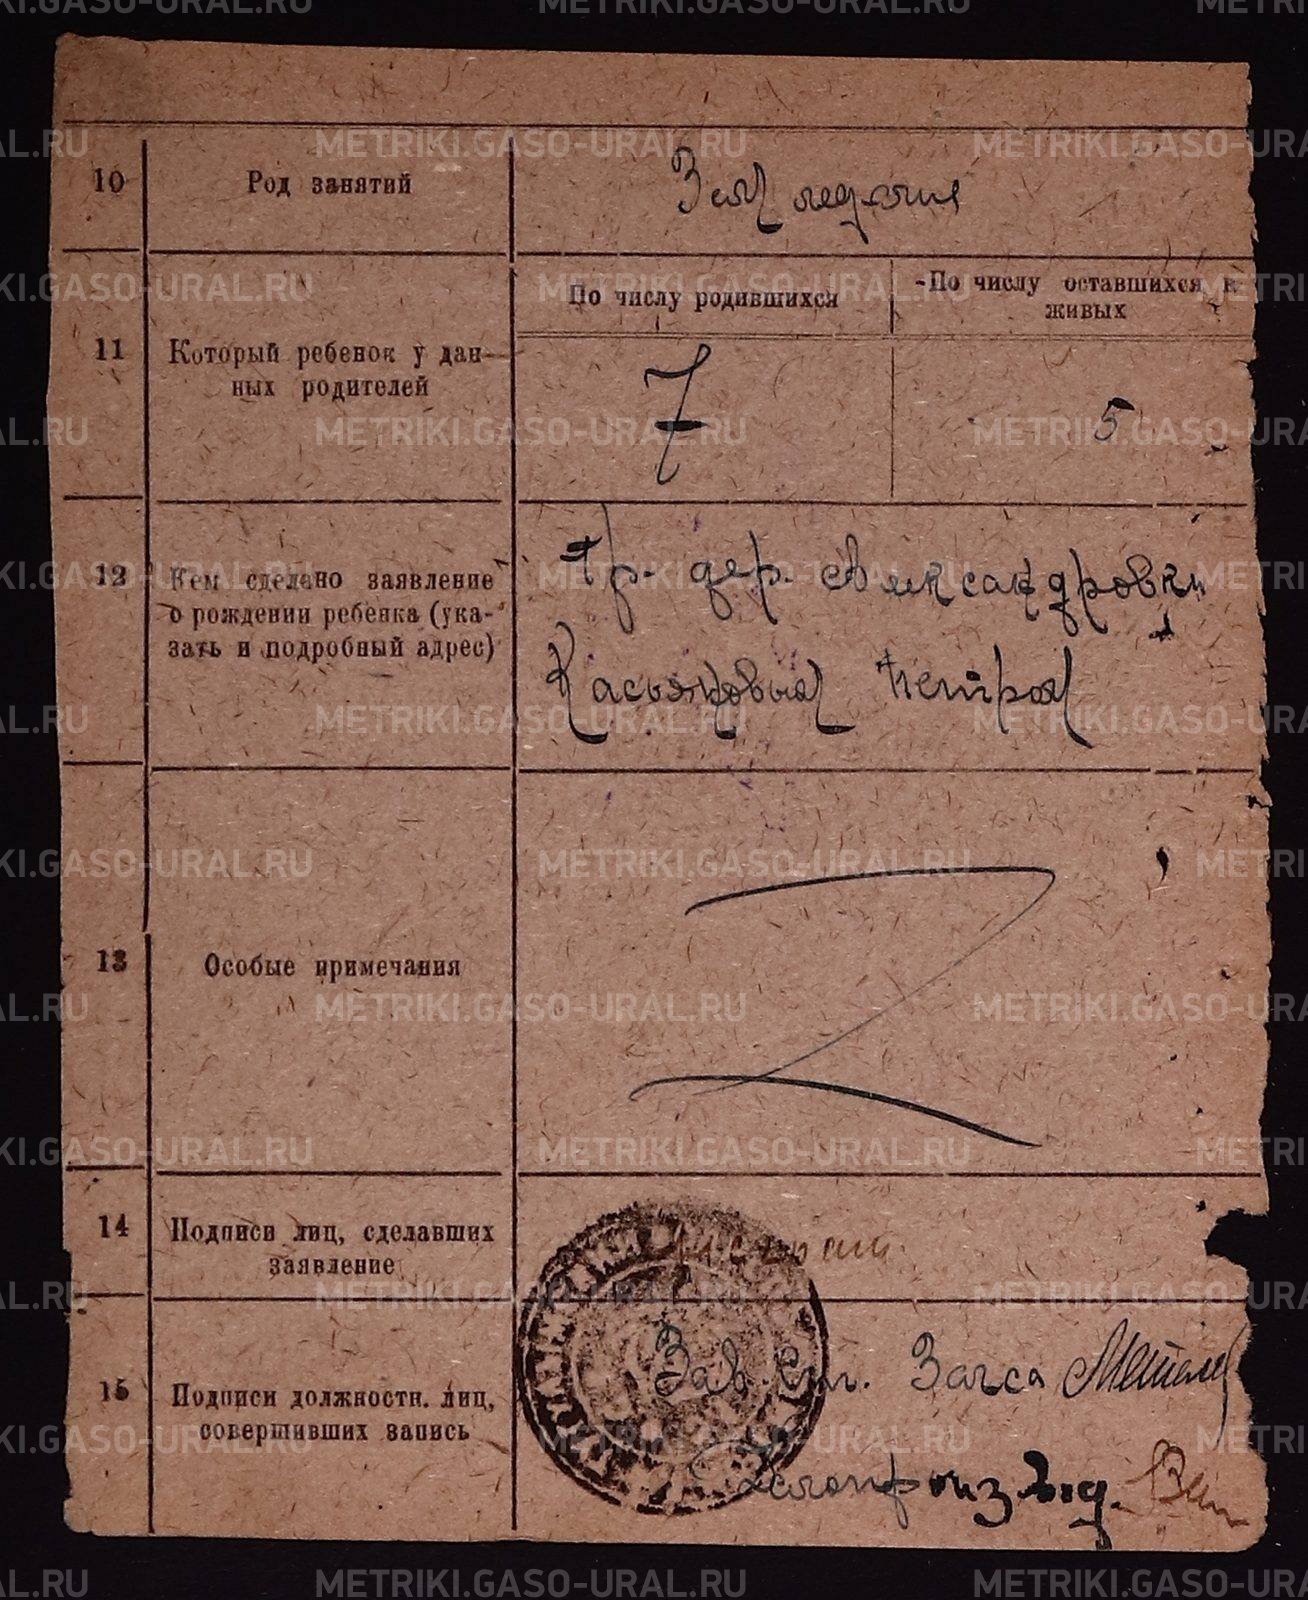 10
Род занятий
Земледелие
11
Который ребенок у дан-
ных родителей
По числу родившихся
По числу оставшихся в
живых
7
5
12
Кем сделано заявление
о рождении ребенка (ука-
зать и подробный адрес)
Гр. дер. Александровки
Касьяновым Петром
13
Особые примечания
14
Подписи лиц, сделавших
заявление
15
Подписи должностн. лиц,
совершивших запись
Зав. Загса
Делопроизвод.
METRIKI.GASO-URAL.RU